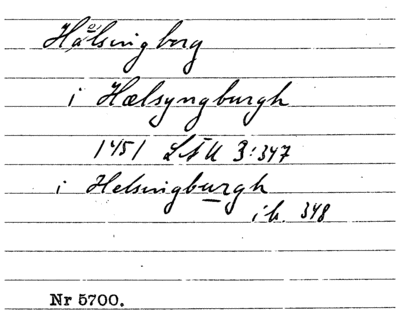 Hälsingborg
i Hælsyngburgh
1451 LAU 3:347
i Helsingburgh
ib. 348
Nr 5700.